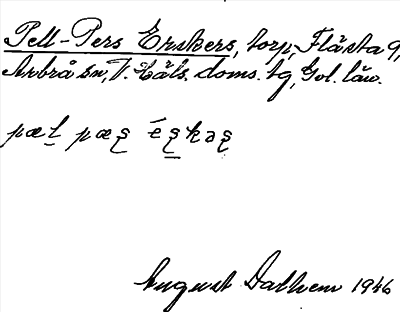 Pell-Pers Erskers, torp, Flästa 9,
Arbrå sn, V. Häls. doms. tg, Gvl. län.
pæʈ pæʂ éʂkəʂ
August Dalhem 1946